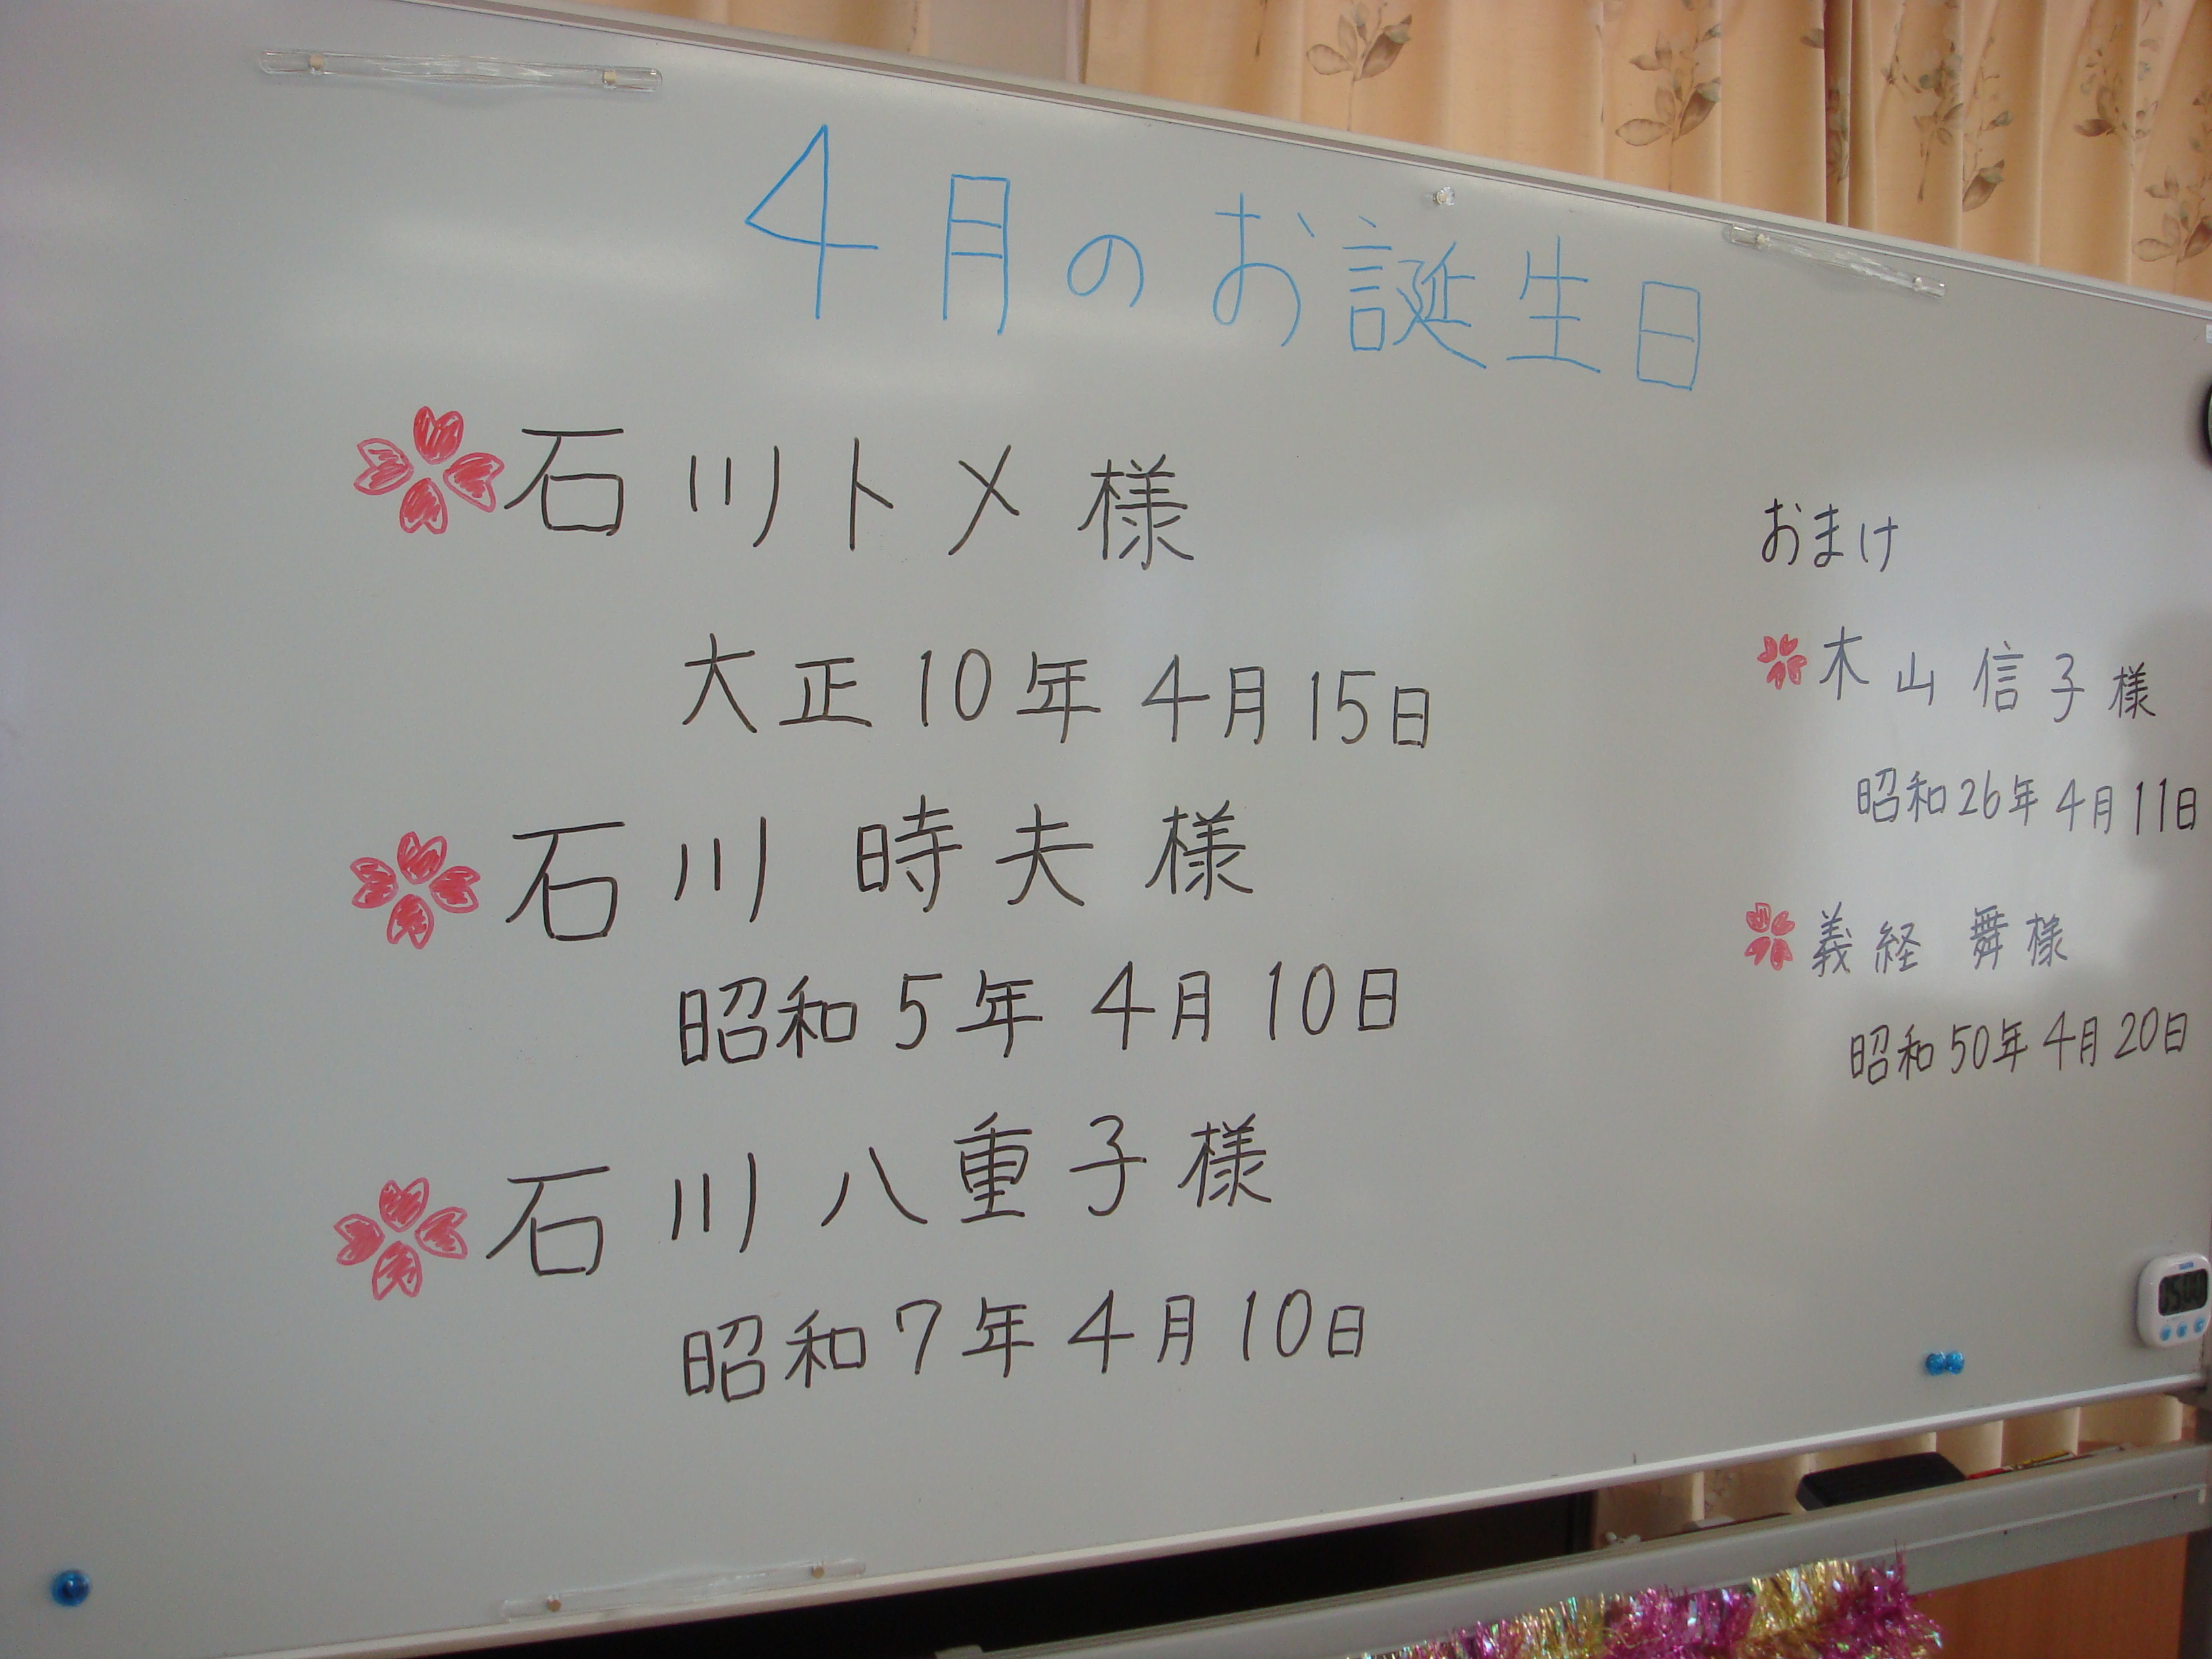 4月のお誕生日
石川トメ様
大正10年4月15日
石川時夫様
昭和5年4月10日
石川八重子様
昭和7年4月10日
おまけ
木山信子様
昭和26年4月11日
義経 舞様
昭和50年4月20日